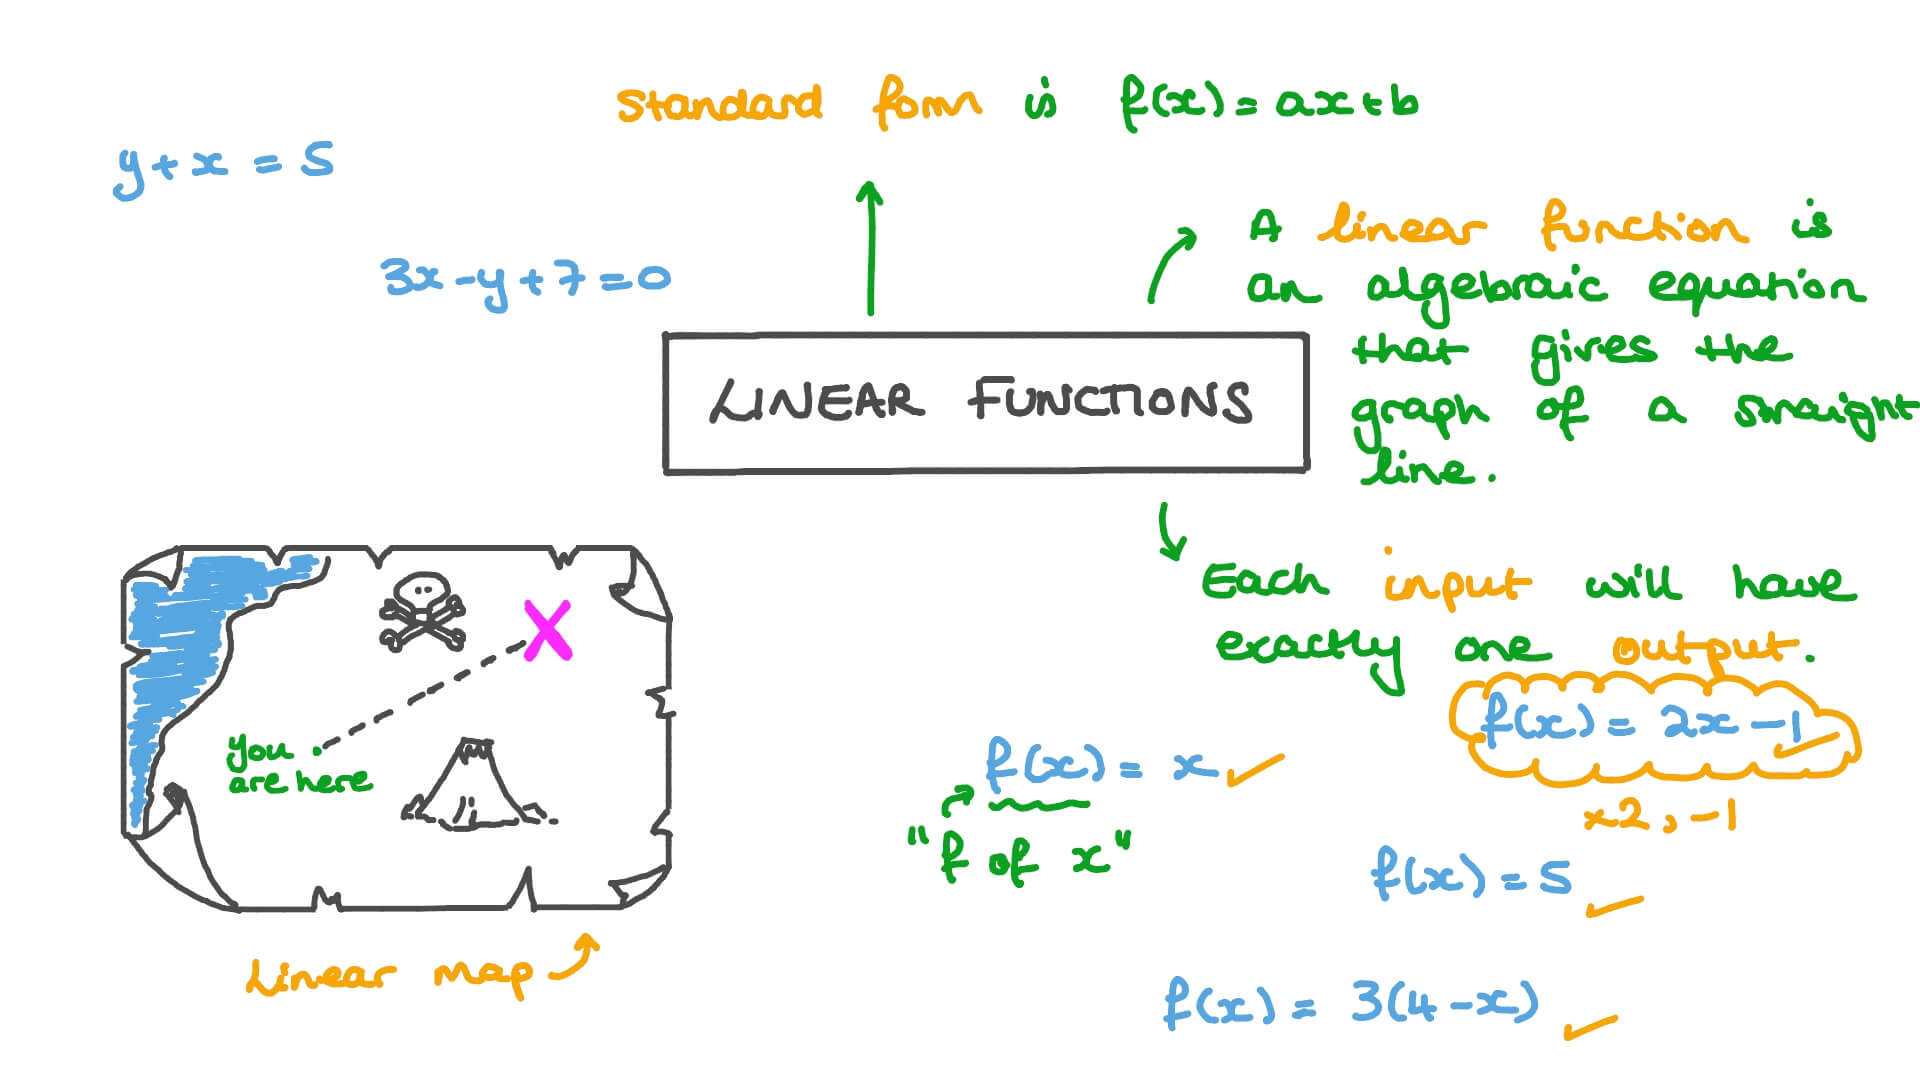 standard form is f(x) = ax + b
y + x = 5
3x - y + 7 = 0
A linear function is
an algebraic equation
that gives the
graph of a straight
line.
LINEAR FUNCTIONS
Each input will have
exactly one output.
f(x) = 2x - 1
x2, -1
f(x) = x
"f of x"
f(x) = 5
f(x) = 3(4 - x)
X
you
are here
Linear map